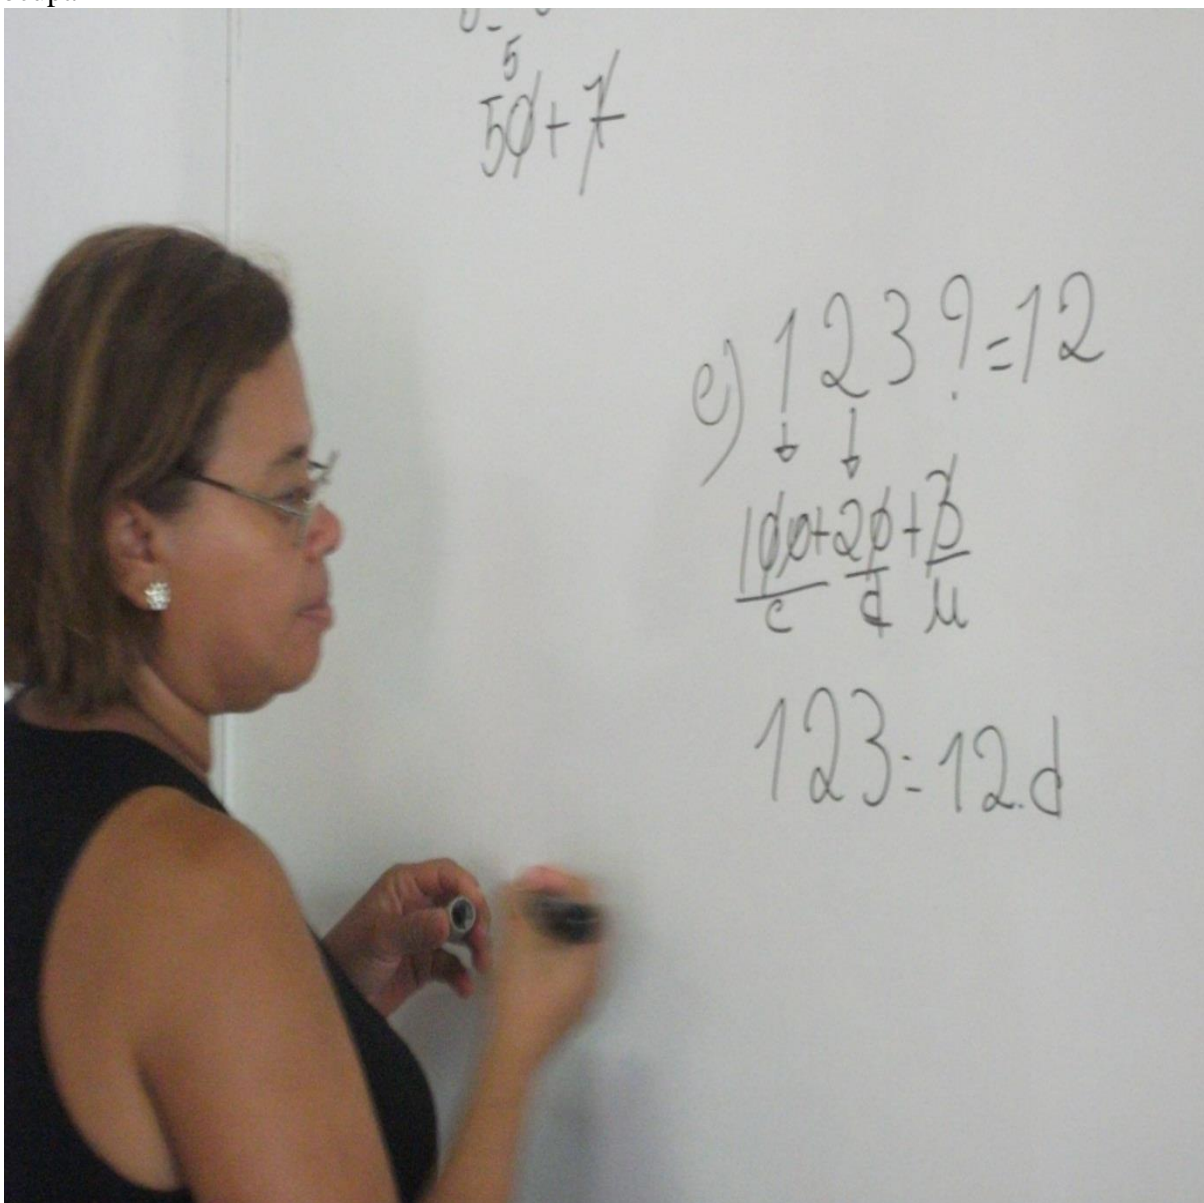 5
50+7
e) 123?=12
100+20+3
c d u
123=12.d